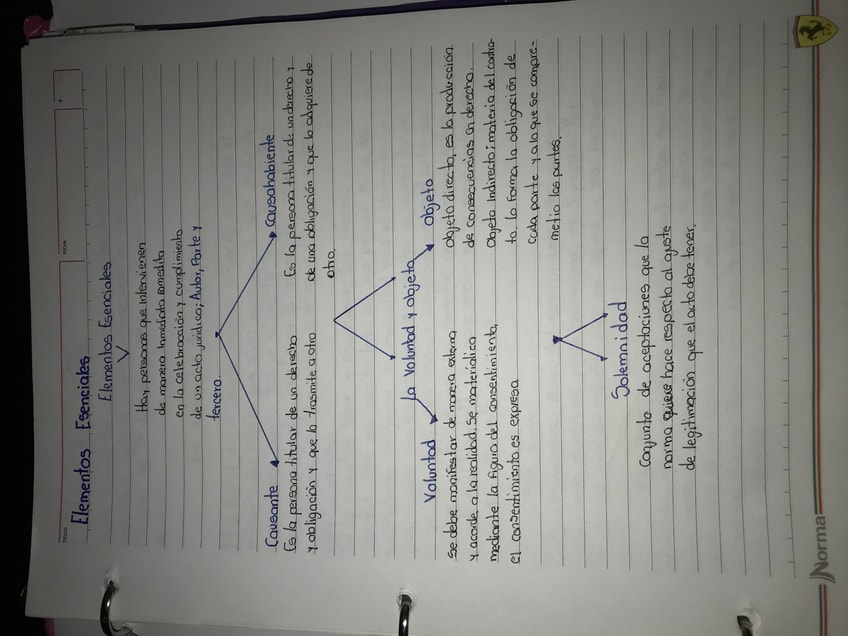 TITULO
FECHA
Elementos Esenciales
Elementos Esenciales
Hay personas que intervienen
de manera inmediata
en la celebración y cumplimiento
de un acto jurídico; Autor, Parte y
tercero
Causante
Es la persona titular de un derecho
y obligación y que la trasmite a otro
Causahabiente
Es la persona titular de un derecho y
de una obligación y que la adquiere de
otro.
La Voluntad y objeto
Voluntad
Se debe manifestar de manera externa
y acorde a la realidad. Se materializa
mediante la figura del consentimiento,
el consentimiento es expresa
Objeto
Objeto directa, es la producción
de consecuencias en derecho.
Objeto Indirecto; materia del contra-
to. la forma la obligación de
cada parte y a la que se compre-
metio las partes.
Solemnidad
Conjunto de aceptaciones que la
norma quiere hace respecto al ajuste
de legitimación que el acto debe tener.
Norma